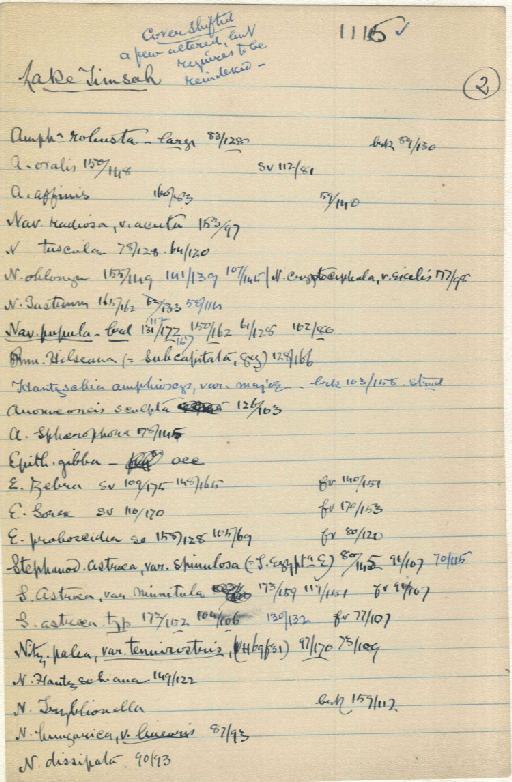 Cover Shifted
a few altered, but
requires to be
reindexed -
1116 ✓
Lake Timsah
2
Amph^a robusta - large 83/128 bek 89/130
A. ovalis 150/148 sv 112/81
A. affinis 160/83 59/140
Nav. radiosa, v. acuta 153/97
N tuscula 78/128. 64/120
N. oblonga 155/149 141/139 107/145 | N. cryptocephala, v. exilis 177/98
N. Gastrum 165/162 /133
Nav. pupula - 131/172 150/162 61/128 162/80
(= subcapitata, ) 128/166
Hantzschia amphioxys, var. major - bek 103/158
Anomoeoneis sculpta 126/103
A. Sphaerophora 179/145
Epith. gibba - occ
E. Zebra sv 109/175 148/165 fv 140/151
E. Sorex sv 110/170 fv 170/153
E. proboscidea sv 158/128 105/69 fv 80/120
Stephanod. Astraea, var. spinulosa (= S. ) 80/145 91/107 70/115
S. Astraea, var. minutula 173/159 117/101 fv 91/107
S. astraea typ 173/102 104/106 130/132 fv 77/107
Nitz. palea, var. tenuirostris, 97/170 75/109
N. Hantzschiana 149/122
N. Tryblionella bek 159/117
N. hungarica, v. linearis 87/93
N. dissipata 90/93